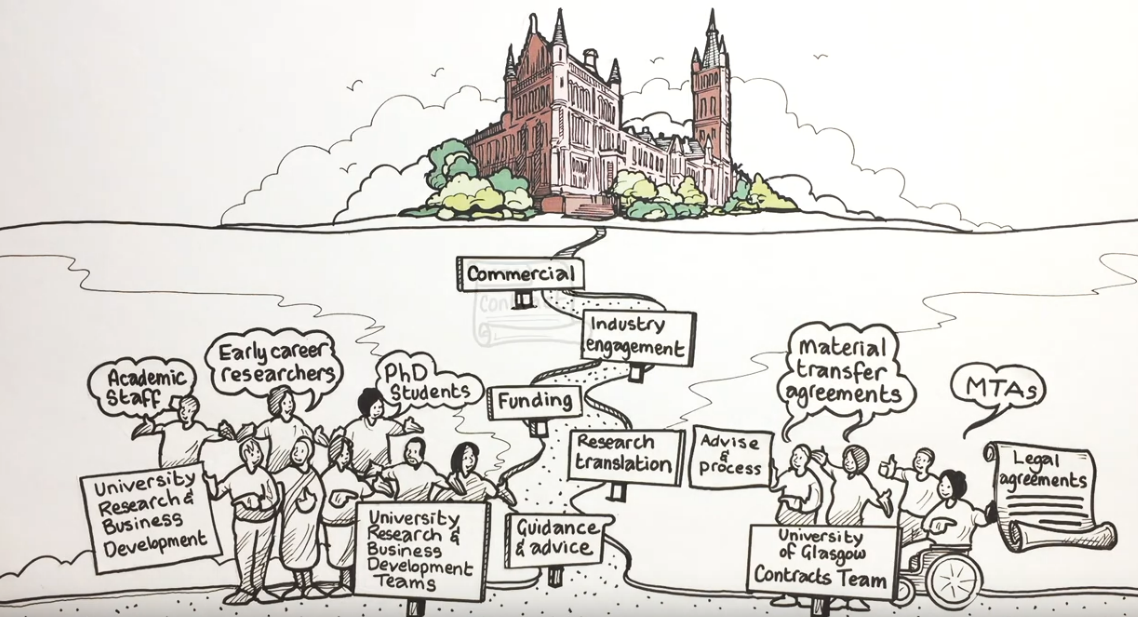 Commercial
Industry
engagement
Funding
Research
translation
Guidance
& advice
Academic
Staff
Early career
researchers
PhD
Students
University
Research &
Business
Development
University
Research &
Business
Development
Teams
Material
transfer
agreements
MTAs
Advise
&
process
Legal
agreements
University
of Glasgow
Contracts Team